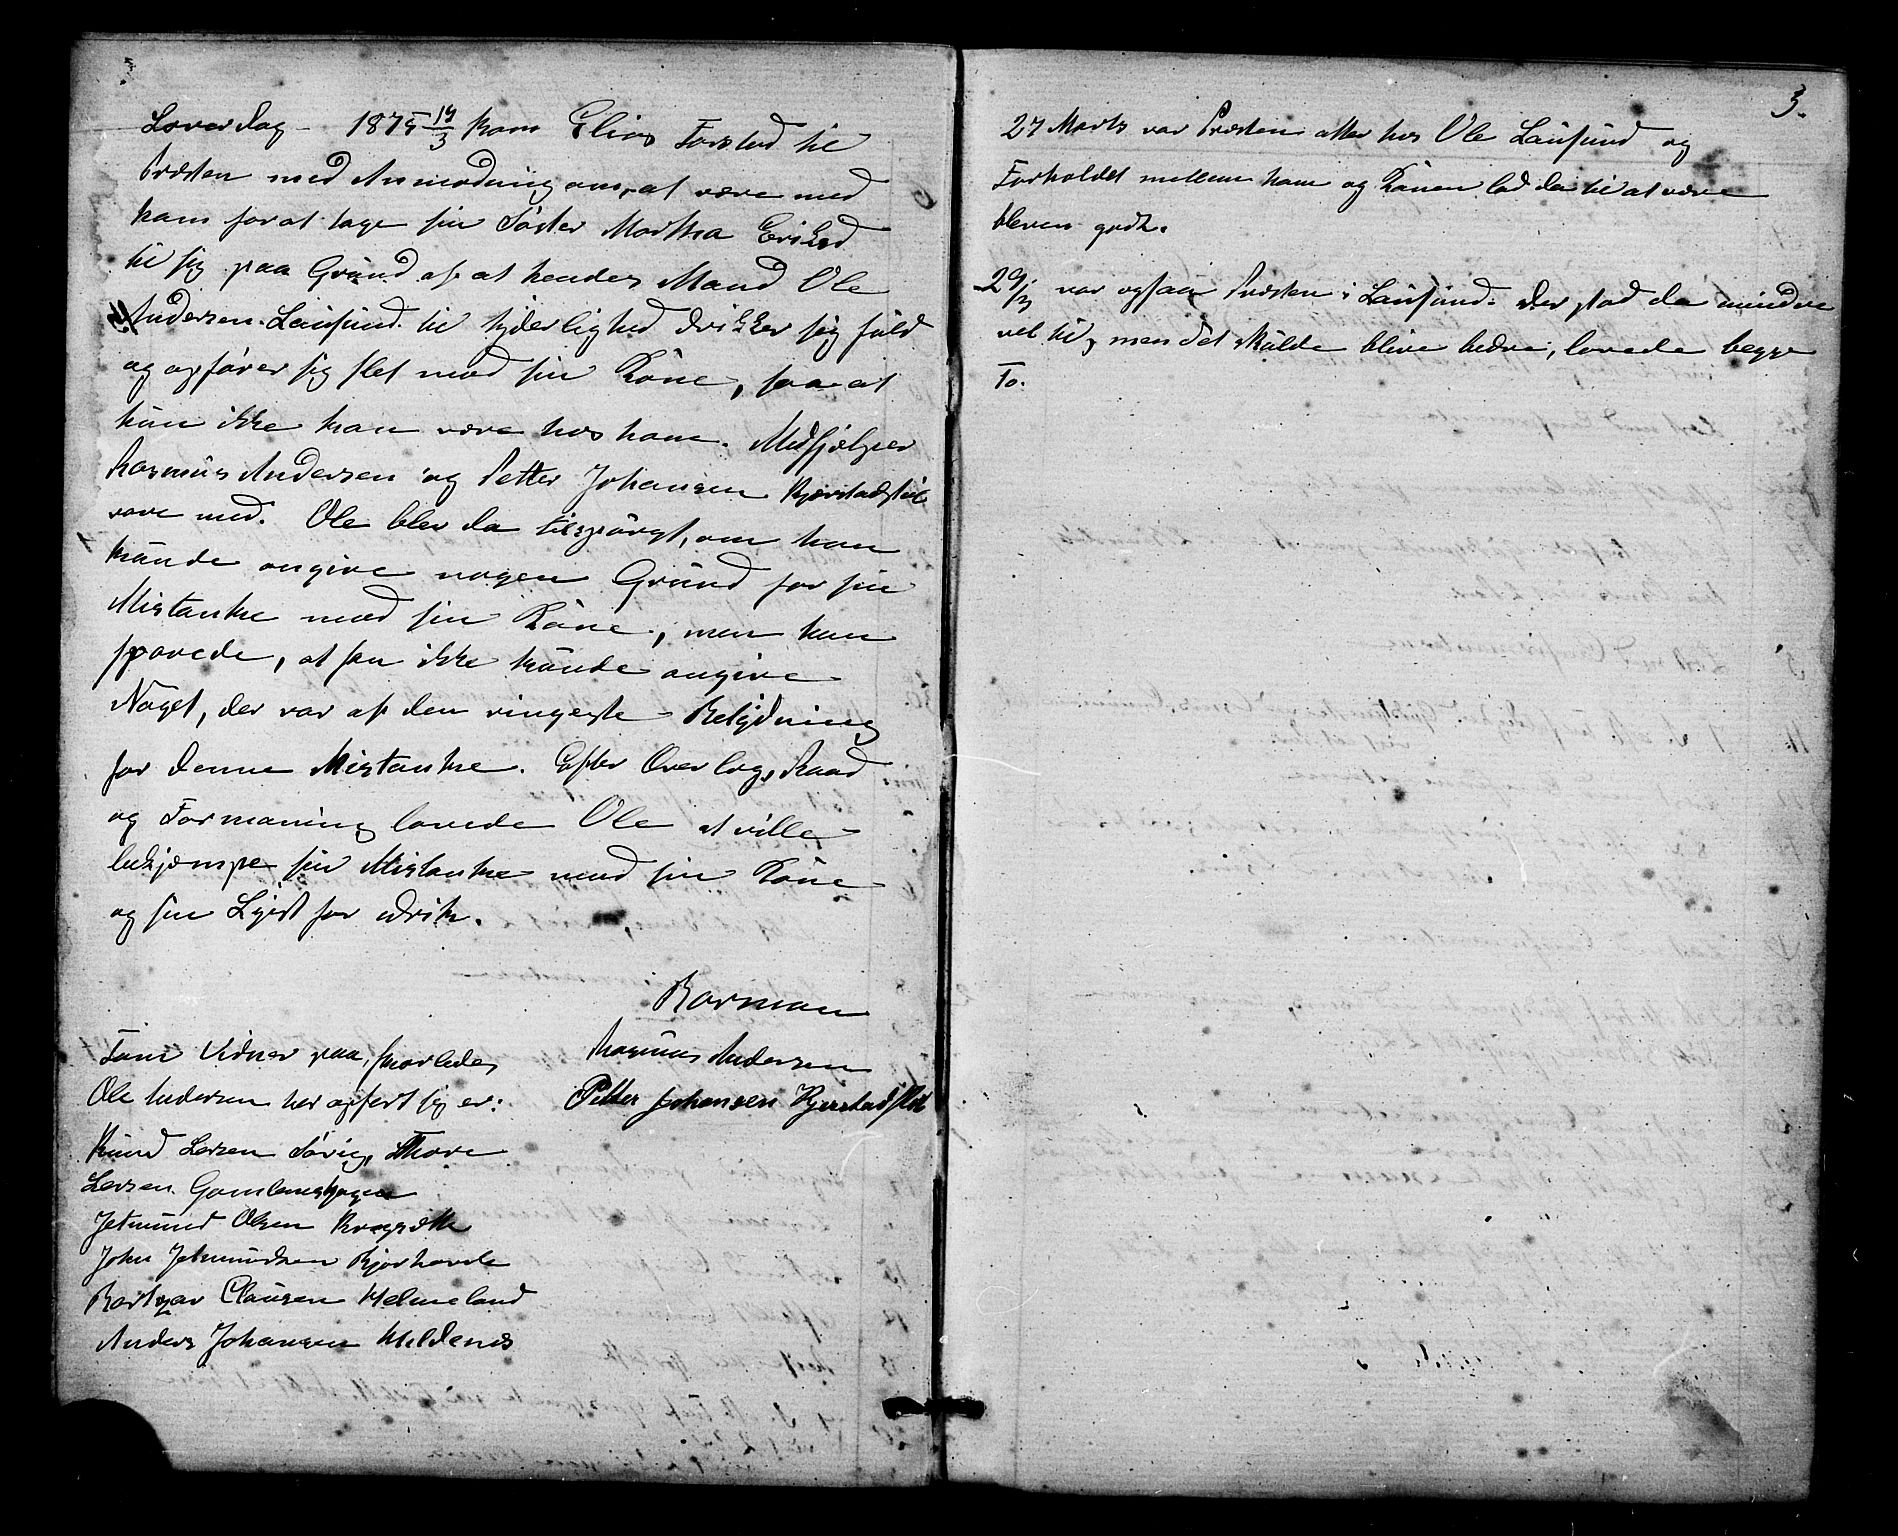 Løverdag - 1875 14/3 kom Elias Farstad til
Præsten med Anmodning om, at være med
ham for at tage sin Søster Martha Eriksd
til sig paa Grund af at hendes Mand Ole
Andersen Lausund til tyderlighed drikker sig fuld
og opfører sig slet mod sin Kone, saa at
hun ikke kan være hos ham. Medhjælper
Rasmus Andersen og Petter Johansen
vare med. Ole blev da tilspurgt, om han
kunde angive nogen Grund for sin
Mistanke mod sin Kone, men han
svarede, at han ikke kunde angive
Noget, der var af den ringeste Betydning
for denne Mistanke. Efter Overlæg, Raad
og Formaning lovede Ole at ville
bekjæmpe sin Mistanke mod sin Kone
og sin Lyst for Drik.
Barman
Rasmus Andersen
Petter Johansen Hjerstadstel
Som Vidner paa, hvorledes
Ole Andersen har opført sig er:
Knud Larsen Sørvig, Thore
Larsen Gamlemshagen
Jetmund Olsen
John Jetmundsen
Clausen Helmeland
Anders Johansen Mildenes
3.
27 Marts var Præsten atter hos Ole Lausund og
Forholdet mellem ham og Konen lod da til at være
bleven godt.
29/3 var ogsaa Præsten i Lausund. Der stod da mindre
vel til, men det skulde blive bedre, lovede begge
To.